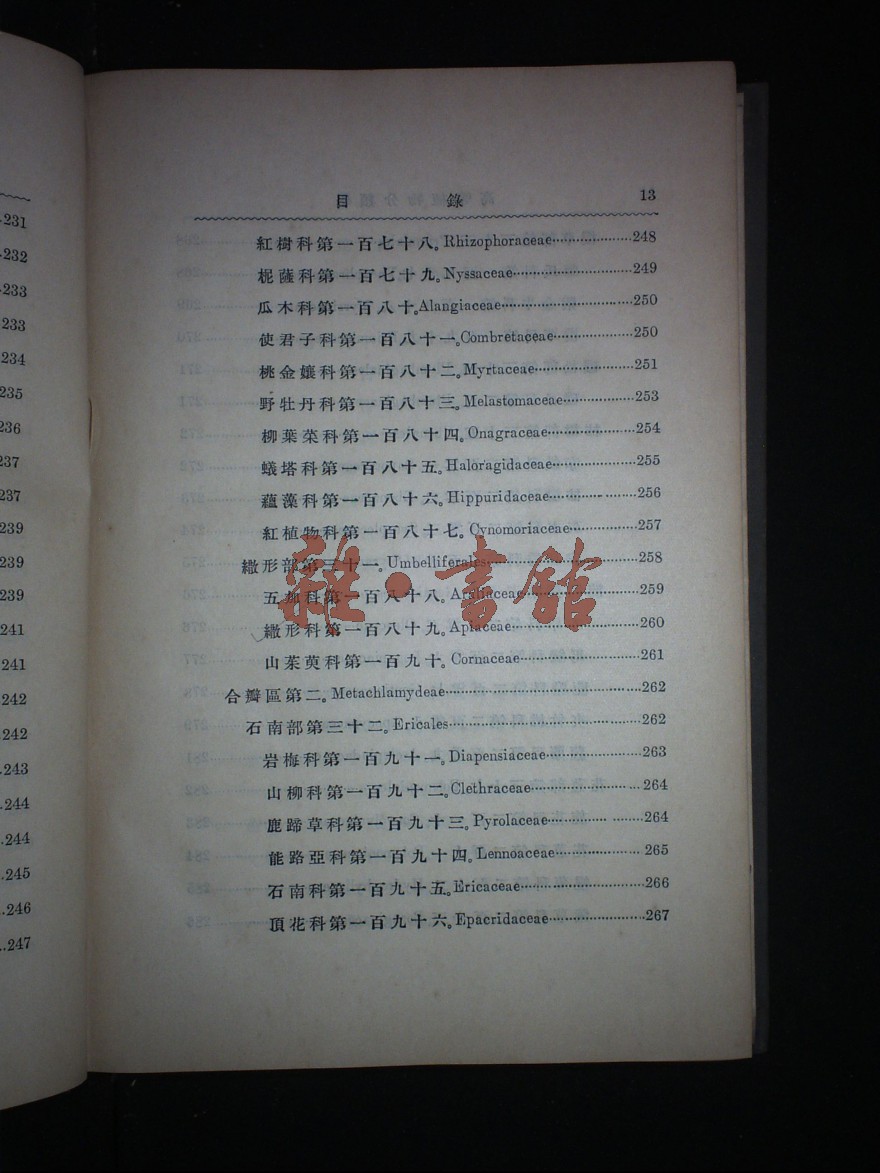 231
232
233
233
234
235
236
237
237
239
239
239
241
241
242
242
243
244
244
245
246
247
目錄 13
紅樹科第一百七十八。Rhizophoraceae……………248
柅薩科第一百七十九。Nyssaceae……………249
瓜木科第一百八十。Alangiaceae……………250
使君子科第一百八十一。Combretaceae……………250
桃金孃科第一百八十二。Myrtaceae……………251
野牡丹科第一百八十三。Melastomaceae……………253
柳葉菜科第一百八十四。Onagraceae……………254
蟻塔科第一百八十五。Haloragidaceae……………255
蘊藻科第一百八十六。Hippuridaceae……………256
紅植物科第一百八十七。Cynomoriaceae……………257
繖形部第三十一。Umbelliferales……………258
五加科第一百八十八。Araliaceae……………259
繖形科第一百八十九。Apiaceae……………260
山茱萸科第一百九十。Cornaceae……………261
合瓣區第二。Metachlamydeae……………262
石南部第三十二。Ericales……………262
岩梅科第一百九十一。Diapensiaceae……………263
山柳科第一百九十二。Clethraceae……………264
鹿蹄草科第一百九十三。Pyrolaceae……………264
能路亞科第一百九十四。Lennoaceae……………265
石南科第一百九十五。Ericaceae……………266
頂花科第一百九十六。Epacridaceae……………267
雜·書館